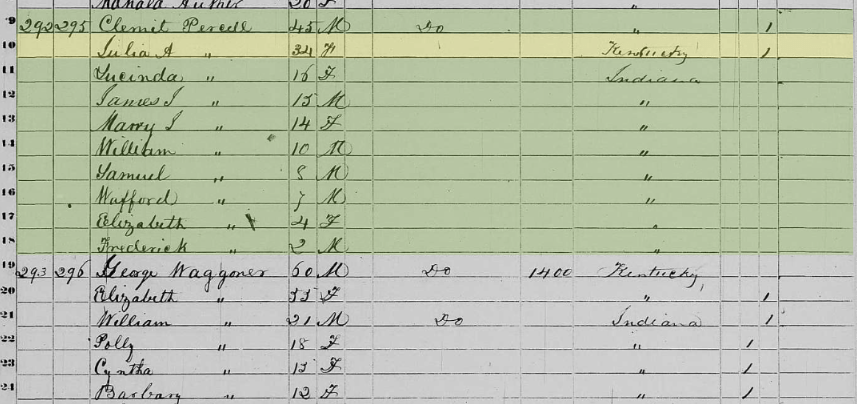 20 F "
9 292 295 Clemit Percde 45 M Do " 1
10 Julia A " 34 F Kentucky 1
11 Lucinda " 16 F Indiana
12 James I " 15 M "
13 Marry I " 14 F "
14 William " 10 M "
15 Samuel " 8 M "
16 Wafford " 7 M "
17 Elizabeth " 4 F "
18 Frederick " 2 M "
19 293 296 George Waggoner 60 M Do 1400 Kentucky
20 Elizabeth " 55 F " 1
21 William " 21 M Do Indiana 1
22 Polly " 18 F " 1
23 Cyntha " 15 F " 1
24 Barbary " 12 F " 1